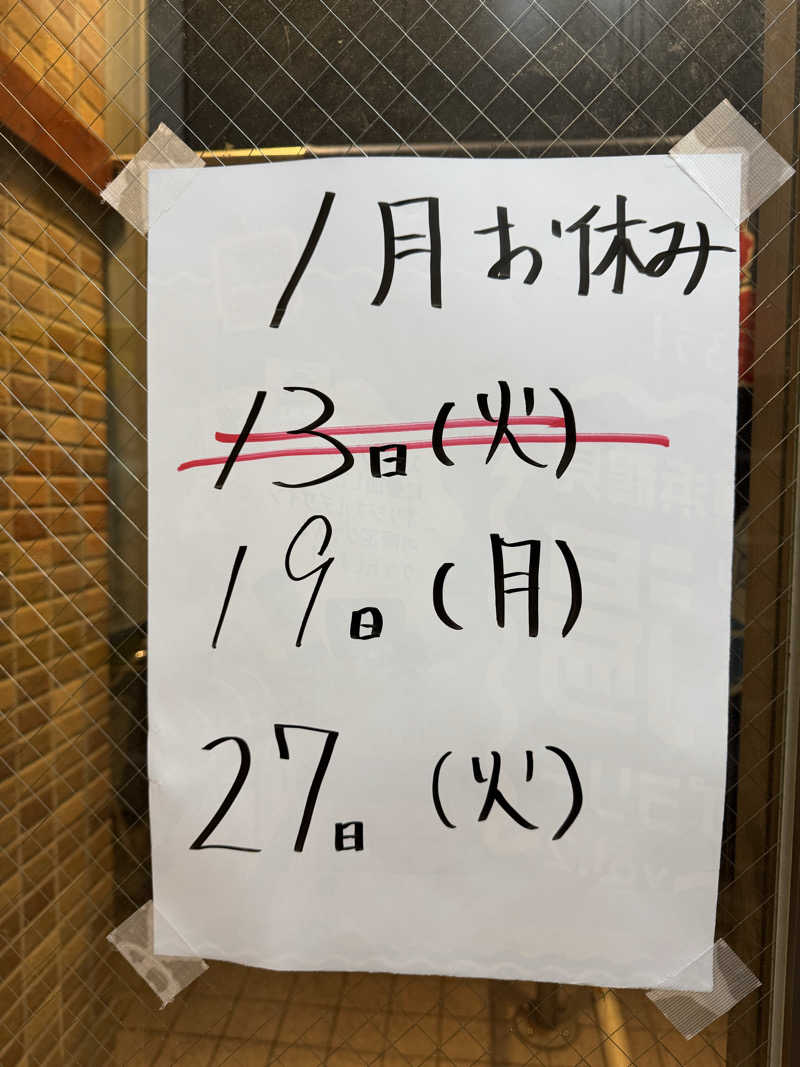 1月お休み
13日(火)
19日(月)
27日(火)